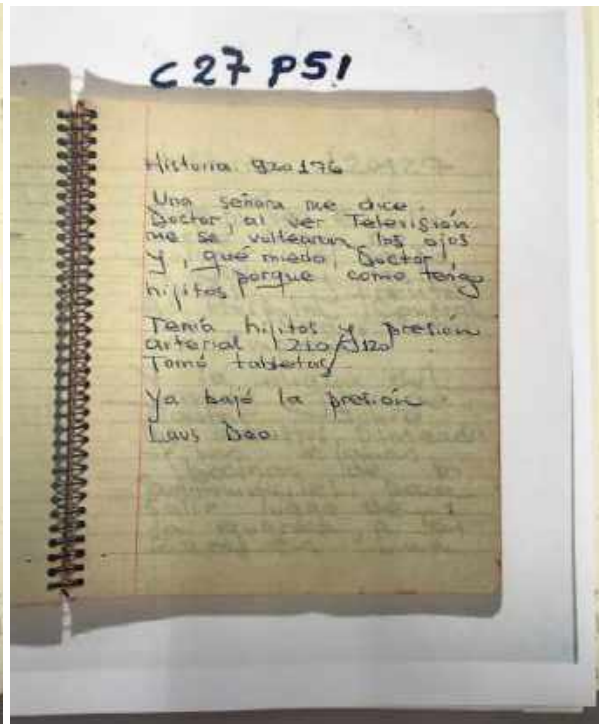 C27 P51
Historia 920176
Una señora me dice.
Doctor, al ver Televisión
me se voltearon los ojos
y, qué miedo, Doctor,
porque como tengo
hijitos
Tenía hijitos y presión
arterial 210/120
Tomó tabletas
Ya bajó la presión
Laus Deo